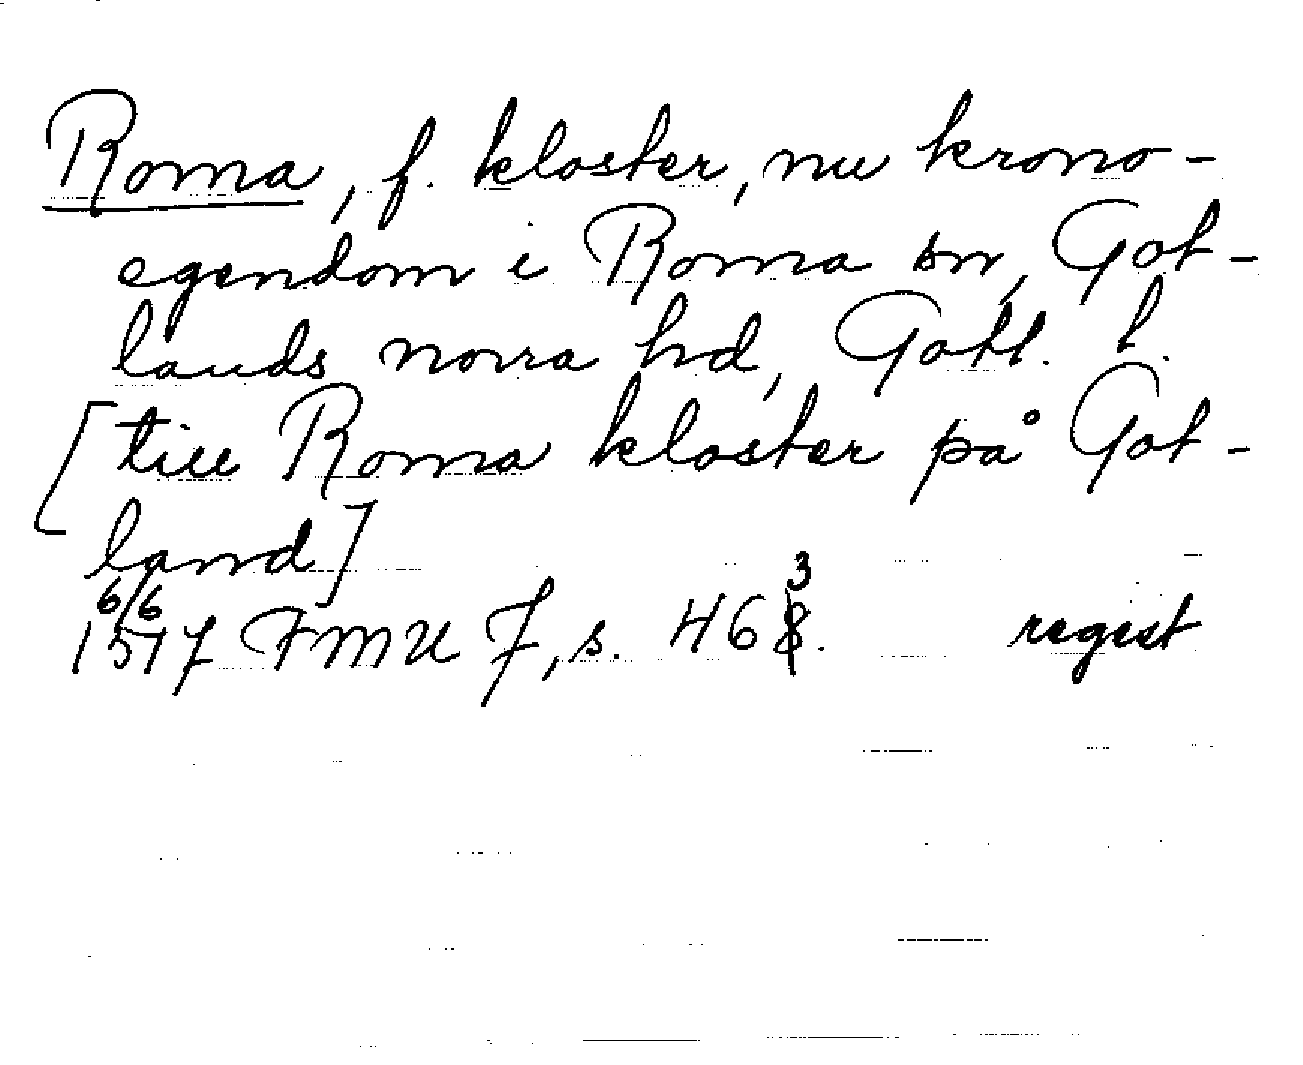 Roma, f. kloster, nu krono-
egendom i Roma sn, Got-
lands norra hd, Gotl. l.
[till Roma kloster på Got-
land]
6/6 3
1517 FMU 7, s. 468. regest